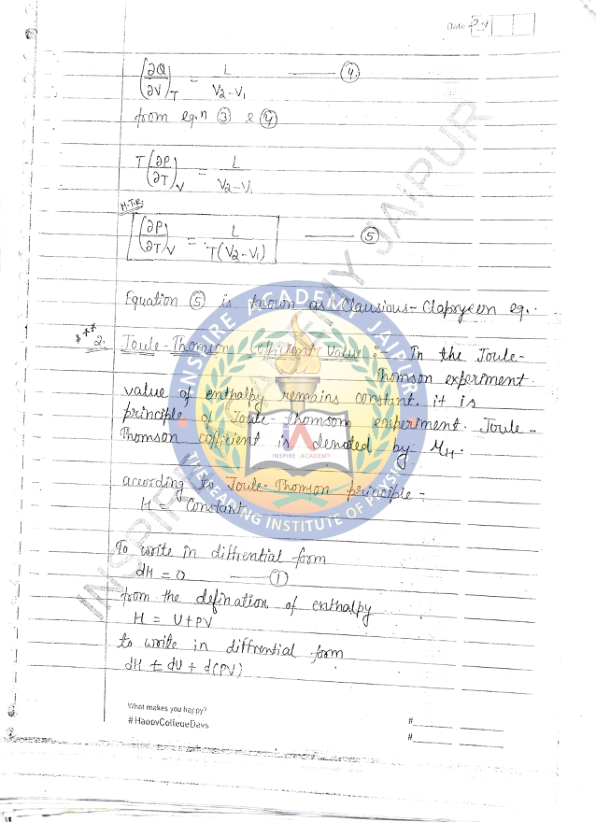 Date 24
(∂Q/∂V)_T = L/(V2-V1) ——— ④
from eq.n ③ & ④
T(∂P/∂T)_V = L/(V2-V1)
M.T.R.
(∂P/∂T)_V = L/T(V2-V1) ——— ⑤
Equation ⑤ is known as Clausious-Clapryeon eq.
*** 2. Joule-Thomson Cofficient Value :- In the Joule-
Thomson experiment
value of enthalpy remains constant. it is
principle of Joule-Thomsom experiment. Joule-
Thomson cofficient is denoted by μH.
acording to Joule-Thomson principle -
H = Constant
To write in diffrential form
dH = 0 ——— ①
from the defination of enthalpy
H = U+PV
to write in diffrential form
dH = dU + d(PV)
What makes you happy?
#HappyCollegeDays
#
#
INSPIRE ACADEMY JAIPUR
INSPIRE ACADEMY JAIPUR
INSPIRE ACADEMY
THE LEARING INSTITUTE OF PHYSICS